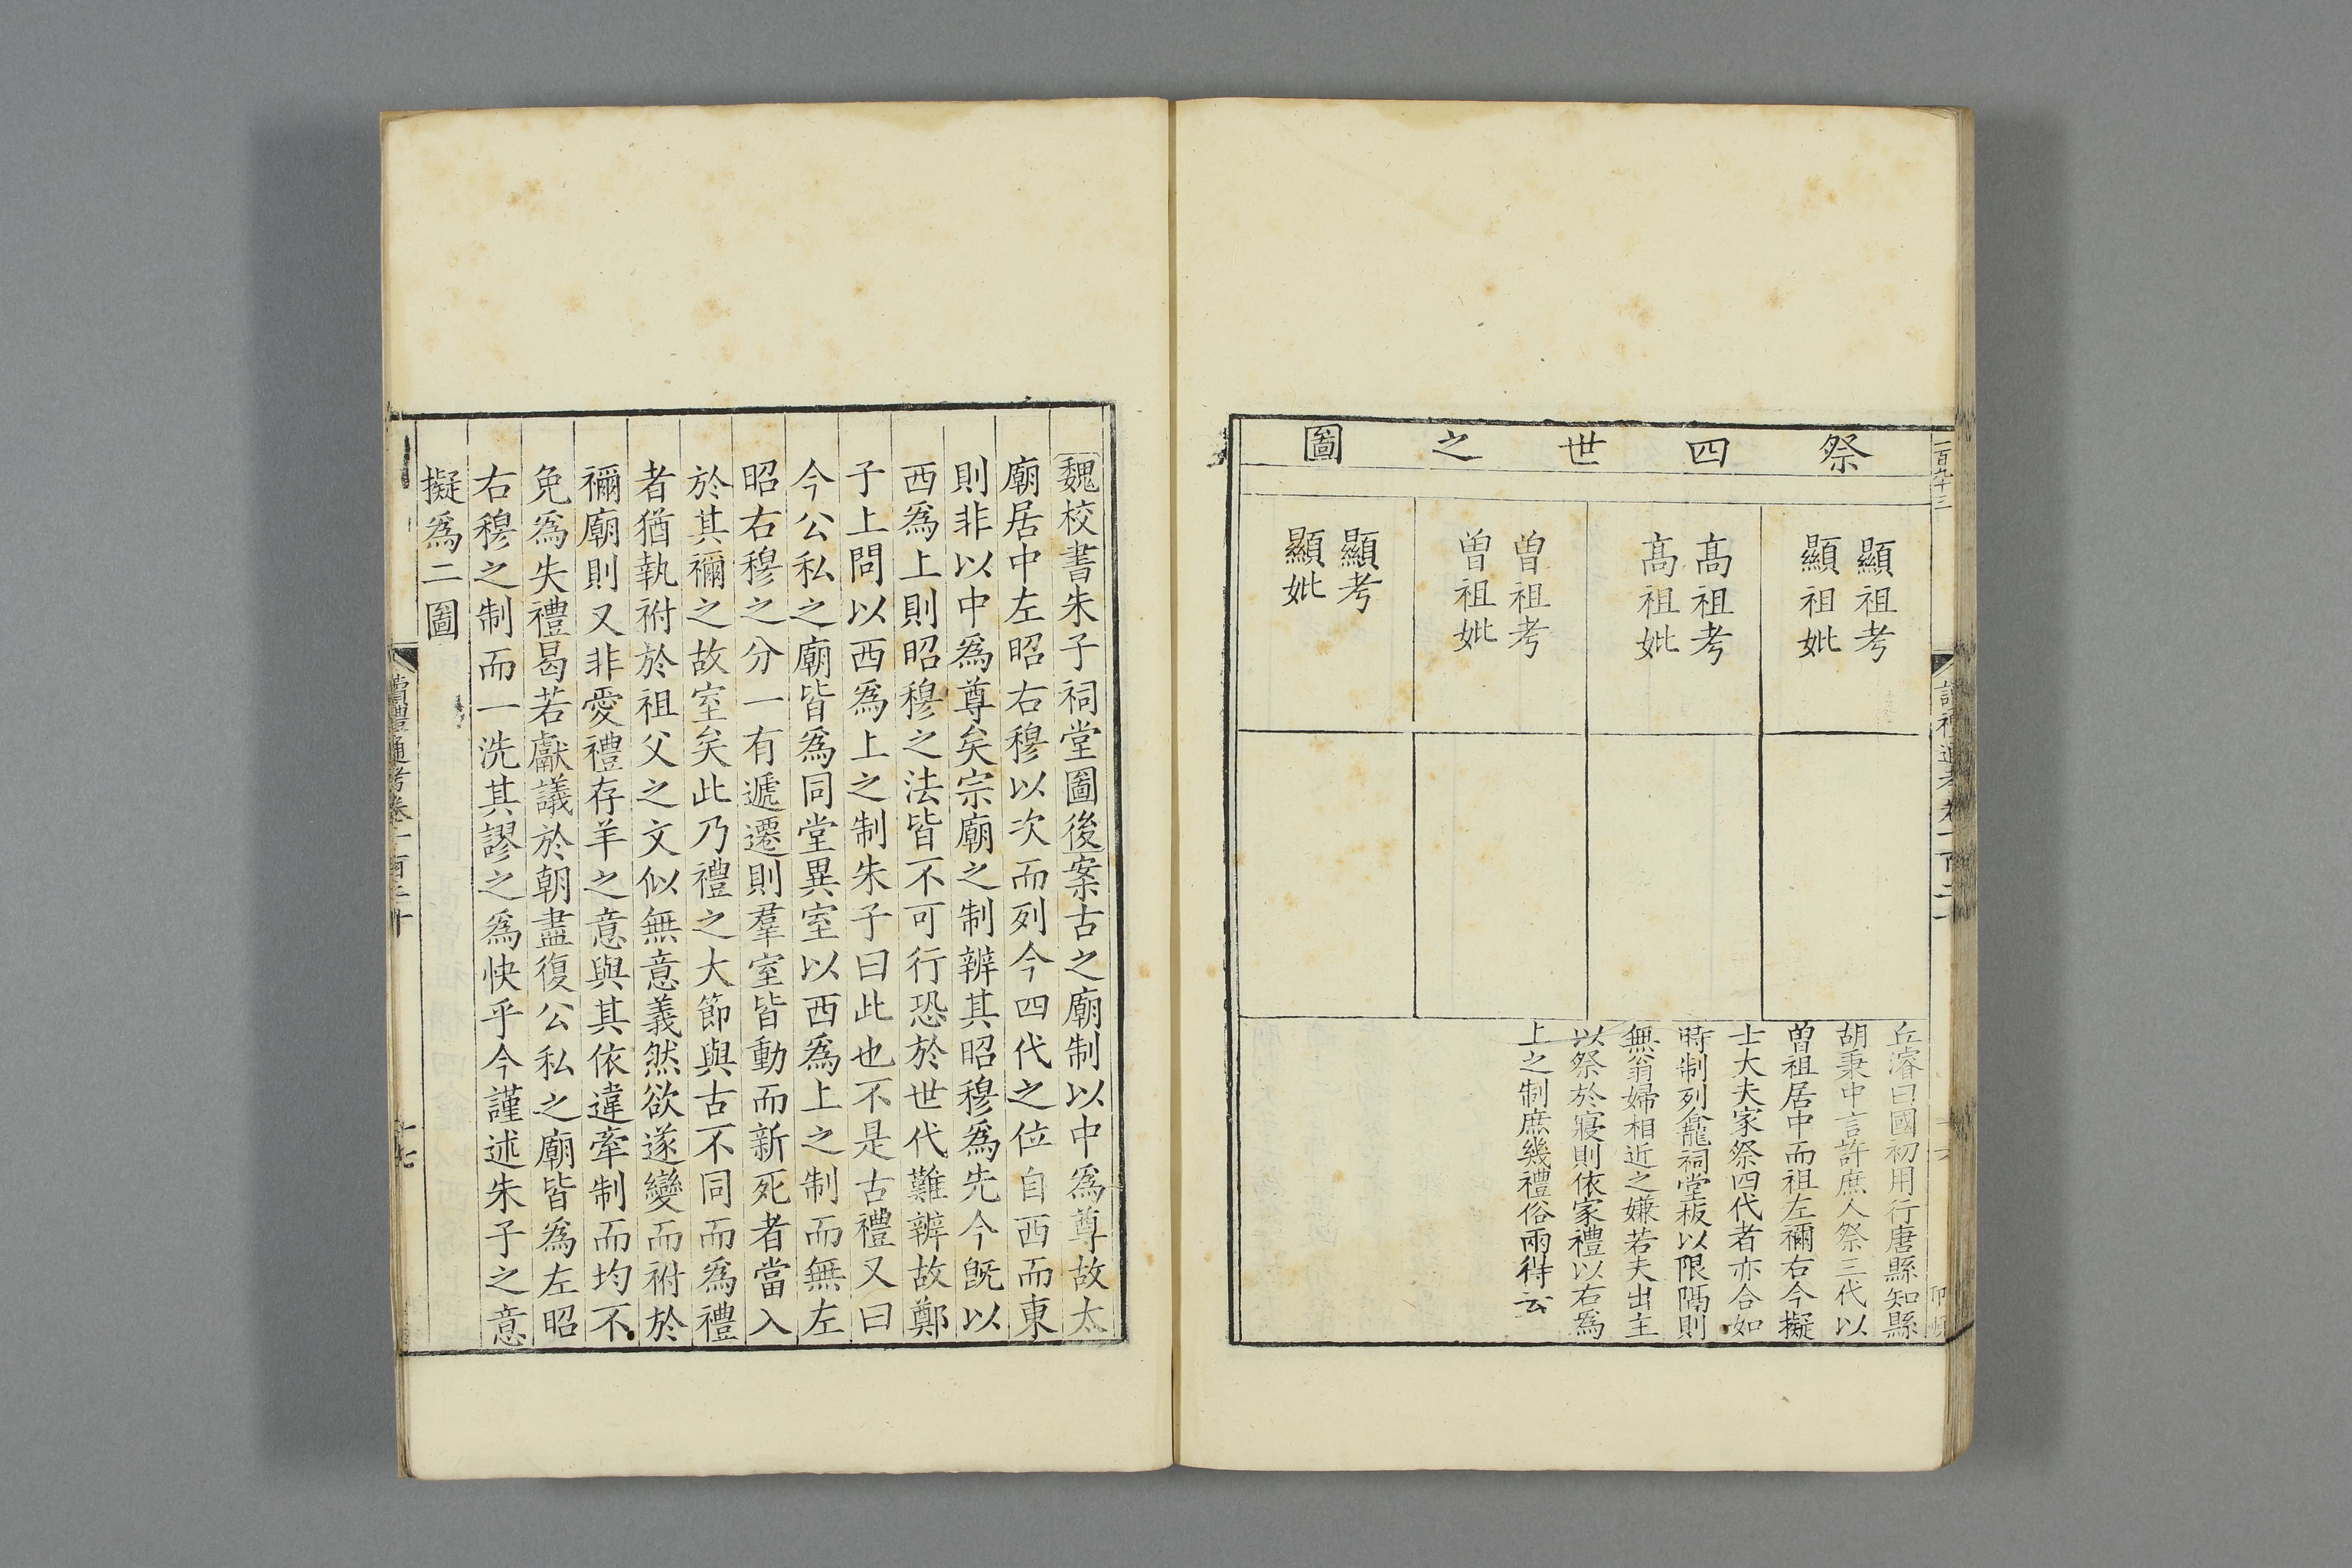 祭四世之圖
顯祖考
顯祖妣
高祖考
高祖妣
曾祖考
曾祖妣
顯考
顯妣
丘濬曰國初用行唐縣知縣
胡秉中言許庶人祭三代以
曾祖居中而祖左禰右今擬
士大夫家祭四代者亦合如
時制列龕祠堂板以限隔則
無翁婦相近之嫌若夫出主
以祭於寢則依家禮以右為
上之制庶幾禮俗兩得云
一百九十三
魏校書朱子祠堂圖後案古之廟制以中爲尊故太
廟居中左昭右穆以次而列今四代之位自西而東
則非以中爲尊矣宗廟之制辨其昭穆爲先今旣以
西爲上則昭穆之法皆不可行恐於世代難辨故鄭
子上問以西爲上之制朱子曰此也不是古禮又曰
今公私之廟皆爲同堂異室以西爲上之制而無左
昭右穆之分一有遞遷則羣室皆動而新死者當入
於其禰之故室矣此乃禮之大節與古不同而爲禮
者猶執祔於祖父之文似無意義然欲遂變而祔於
禰廟則又非愛禮存羊之意與其依違牽制而均不
免爲失禮曷若獻議於朝盡復公私之廟皆爲左昭
右穆之制而一洗其謬之爲快乎今謹述朱子之意
擬爲二圖
讀禮通考卷一百二十
十七